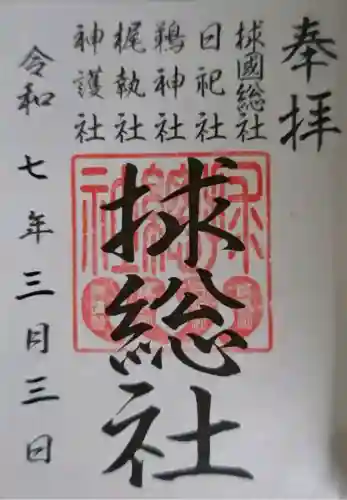 奉拝
捄國総社
日祀社
鵜神社
梶執社
神護社
捄総社
令和七年三月三日